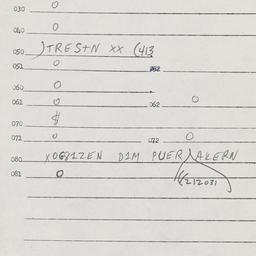 030 0
040 0
050 )TRESTN XX (413
051 0 052
060 0
061 0 062 0
070 $
071 0 072 0
080 XOG81ZEN D1M PUER)AKERN
081 0 ((212031